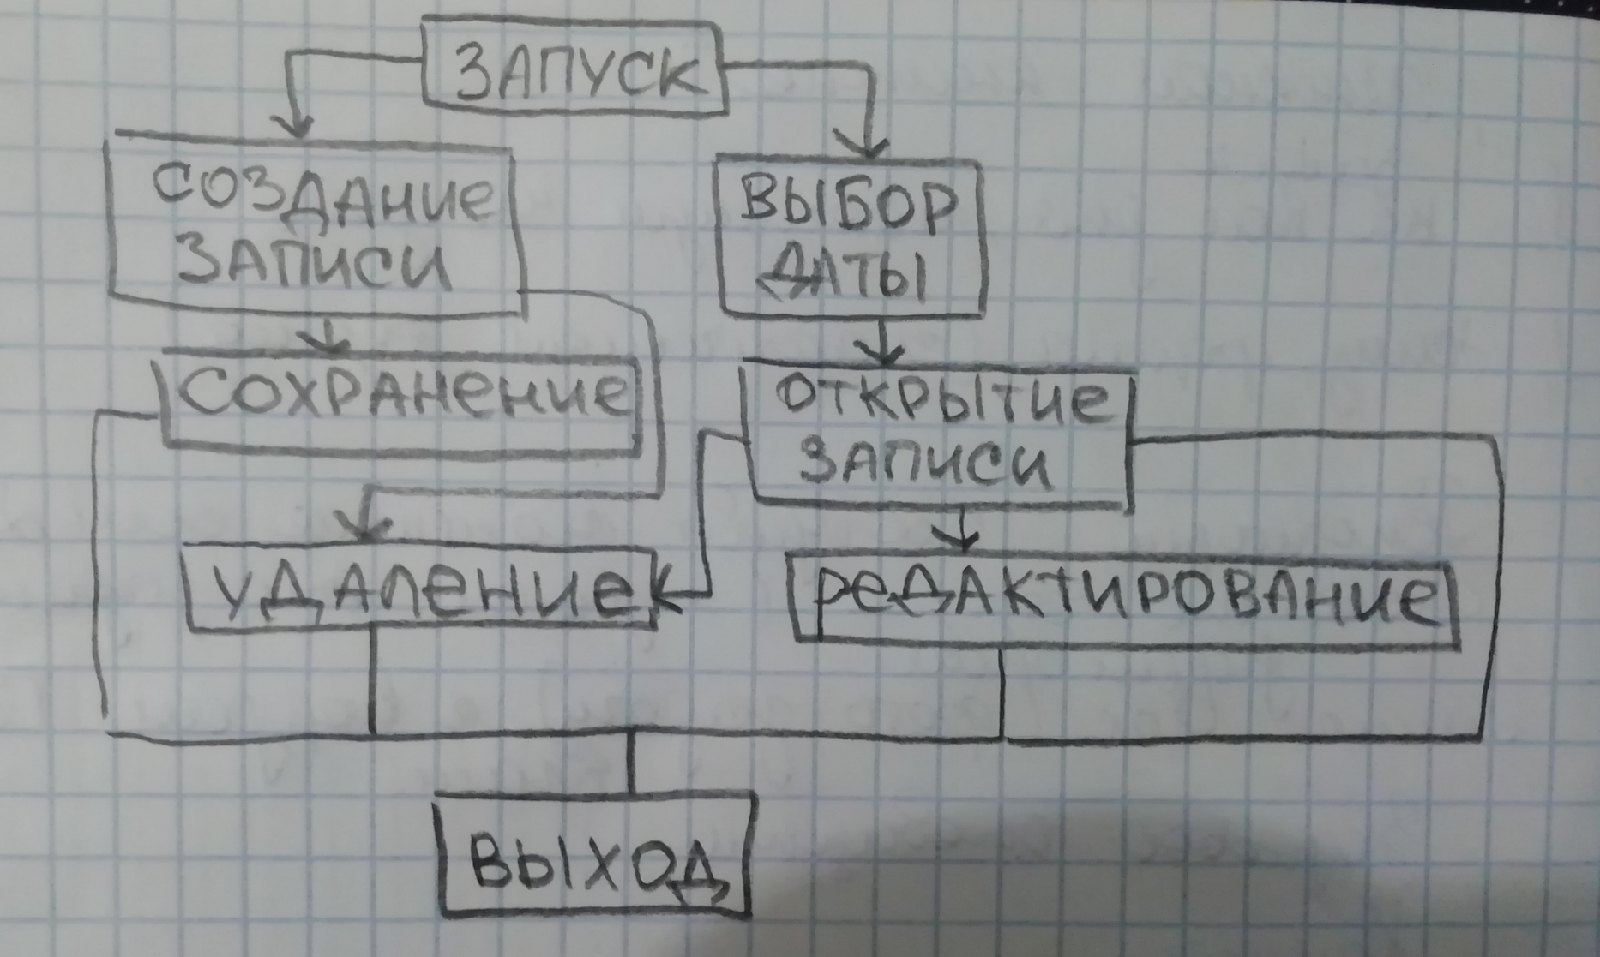 ЗАПУСК
СОЗДАНИЕ
ЗАПИСИ
ВЫБОР
ДАТЫ
СОХРАНЕНИЕ
ОТКРЫТИЕ
ЗАПИСИ
УДАЛЕНИЕ
РЕДАКТИРОВАНИЕ
ВЫХОД